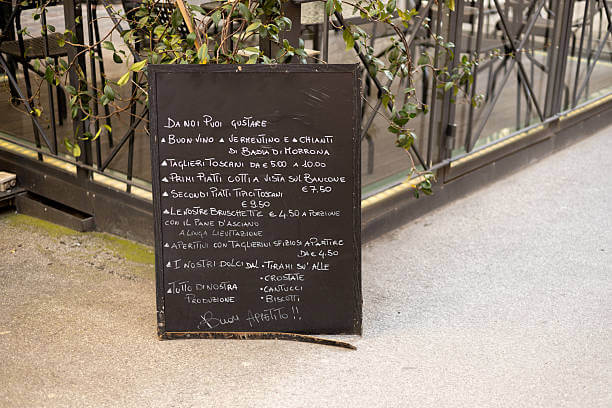 DA NOI PUOI GUSTARE
▲ BUON VINO ▲ VERMENTINO E ▲ CHIANTI
DI BADIA DI MORRONA
▲ TAGLIERI TOSCANI DA € 5.00 A 10.00
▲ PRIMI PIATTI COTTI A VISTA SUL BANCONE
€ 7.50
▲ SECONDI PIATTI TIPICI TOSCANI
€ 9.50
▲ LE NOSTRE BRUSCHETTE € 4.50 A PORZIONE
CON IL PANE D'ASCIANO
A LINGA LIEVITAZIONE
▲ APERITIVI CON TAGLIERINI SFIZIOSI A PARTIRE
DA € 4.50
▲ I NOSTRI DOLCI DAL • TIRAMI SU' ALLE
• CROSTATE
▲ TUTTO DI NOSTRA • CANTUCCI
PRODUZIONE • BISCOTTI
BUON APPETITO!!